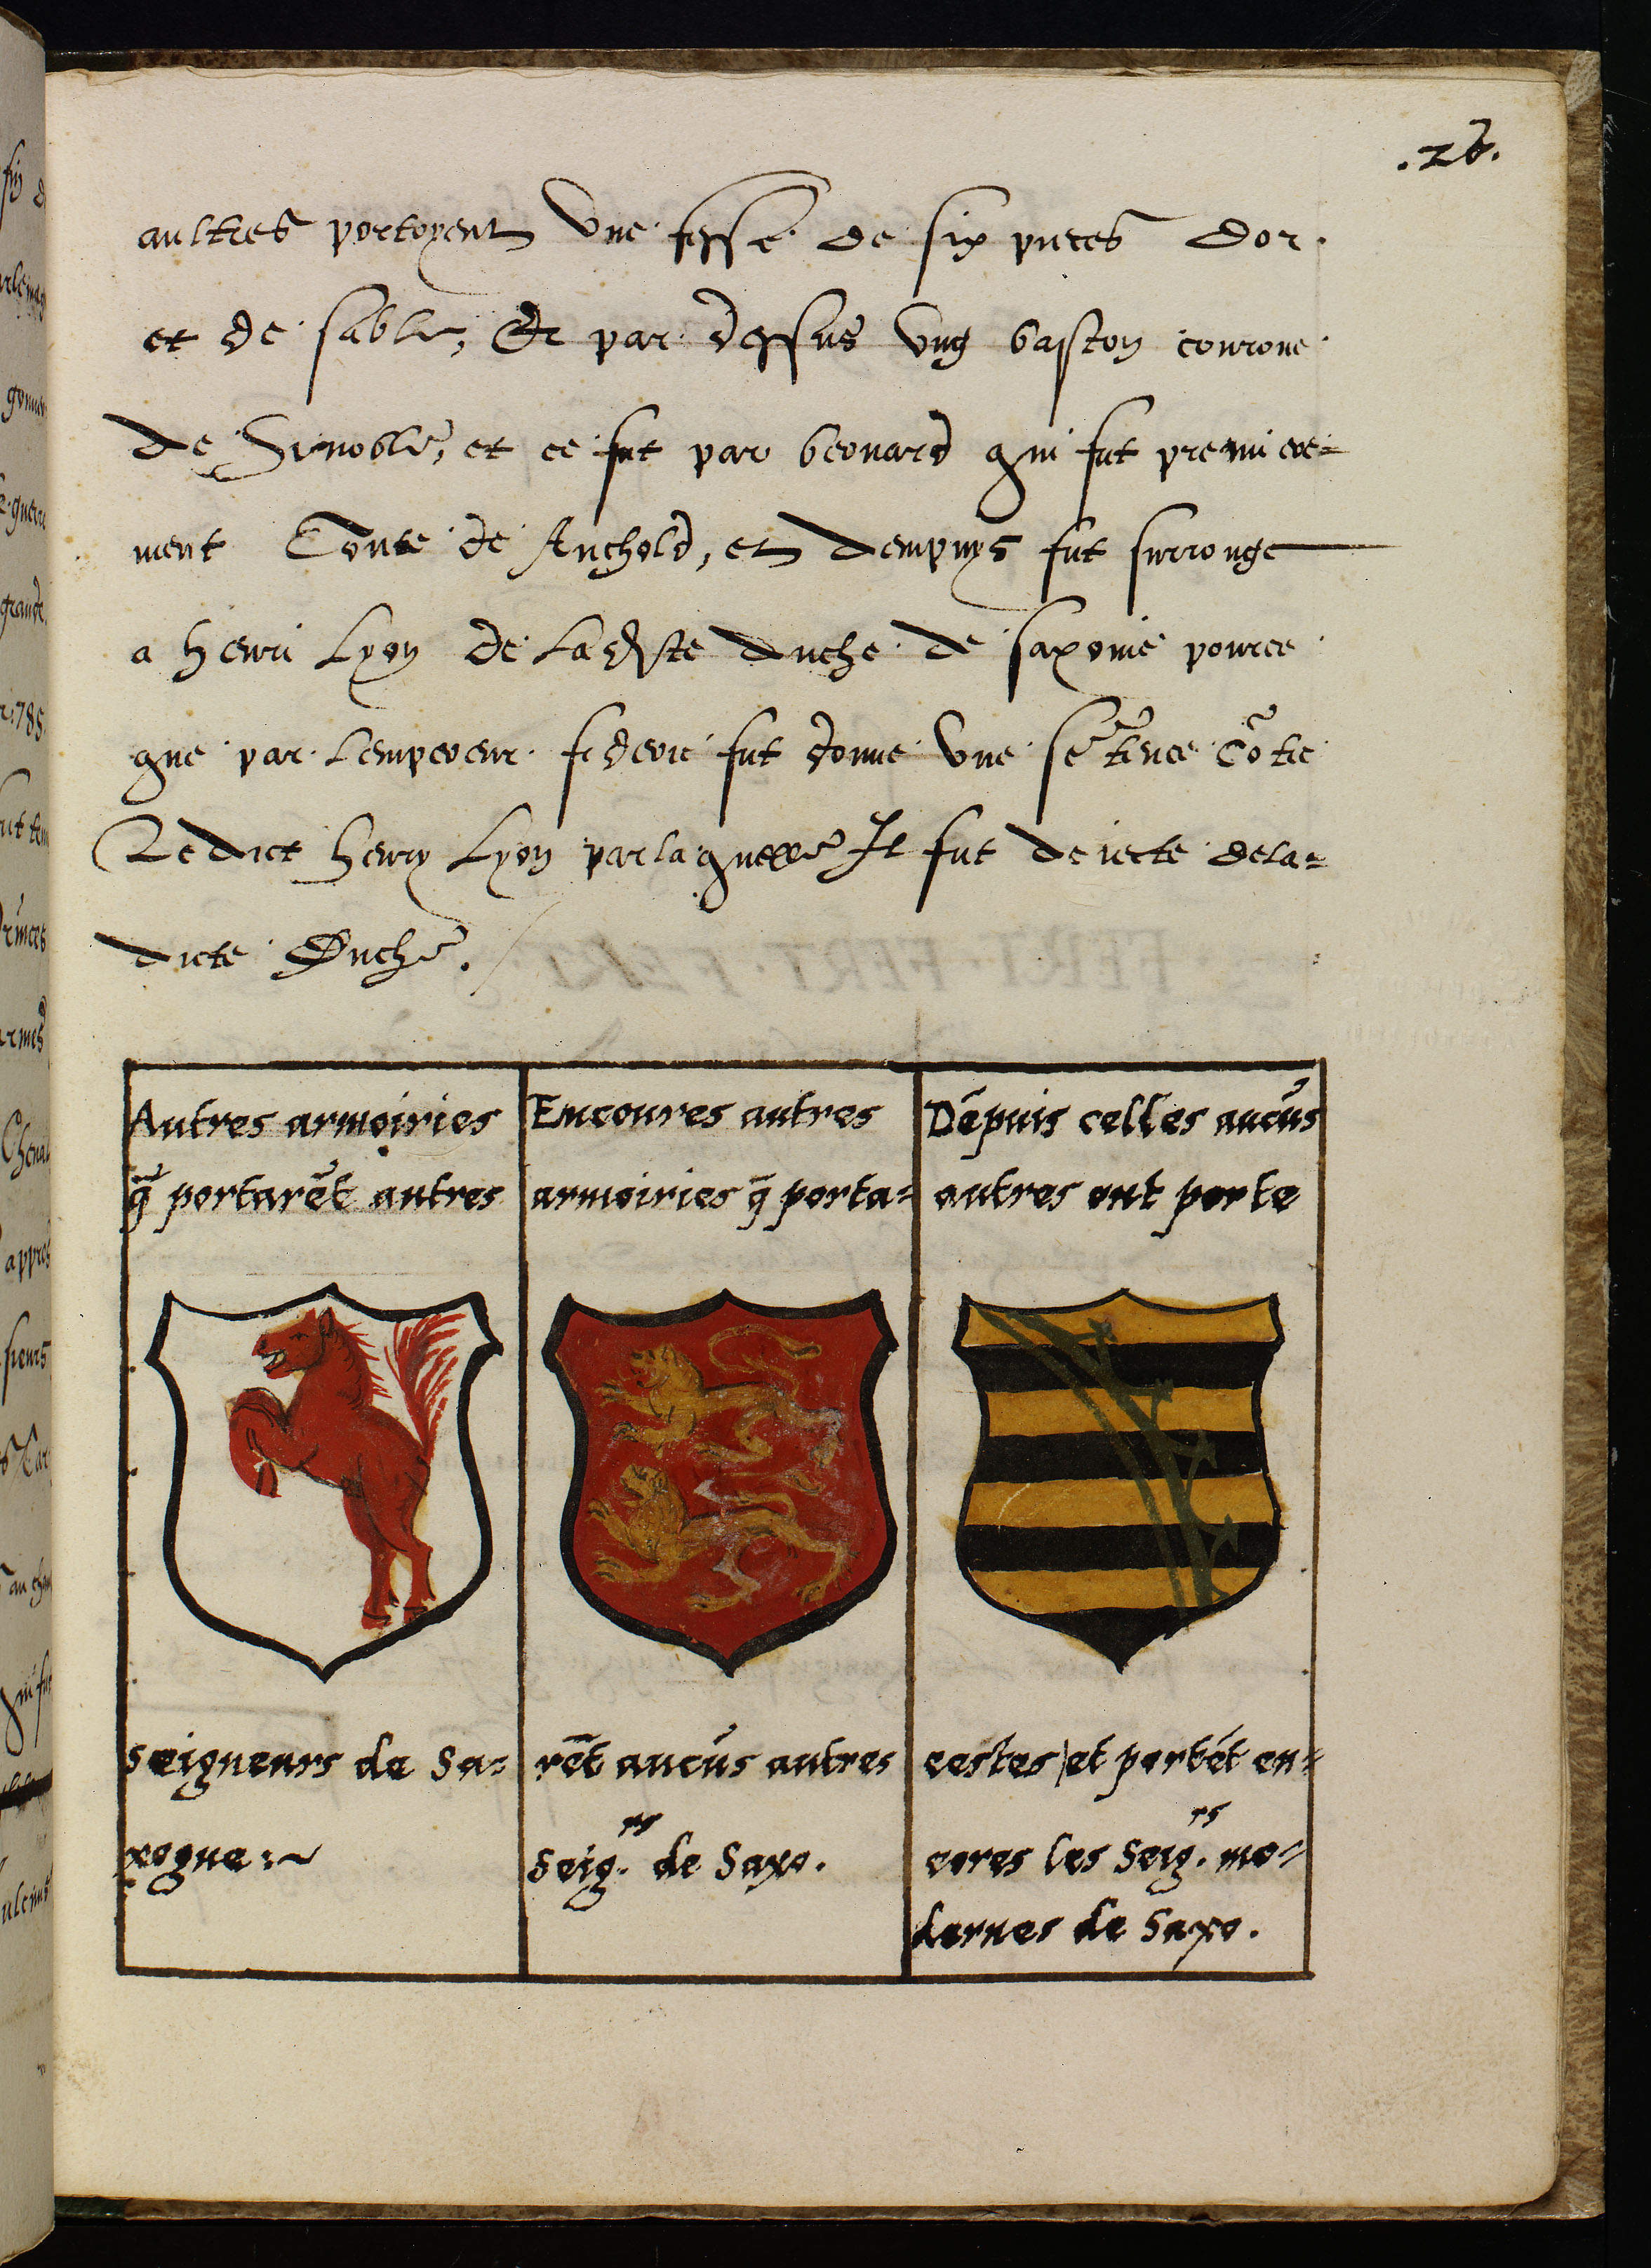 .26.
aultres portoyent une fesse de six pieces dor.
et de sable, Et par dessus ung baston courone
de Sinoble, et ce fut par beronard qui fut premiere=
ment Conte de Anchold, et dempuys fut surrouge
a henri Lyon de Ladicte duche de saxonie pource
que par Lempereur federic fut donne une sētence cōtre
Ledict henry Lyon par laquelle Il fut deiecte dela=
dicte Duche.
Autres armoiries
q̃ portarẽt autres
seigneurs de Sa=
xogne:~
Encoures autres
armoiries q̃ porta=
rẽt aucũs autres
Seig.rs de Saxo.
Dépuis celles aucũs
autres ont porte
cestes, et portẽt en=
cores les Seig.rs mo=
dernes de Saxo.